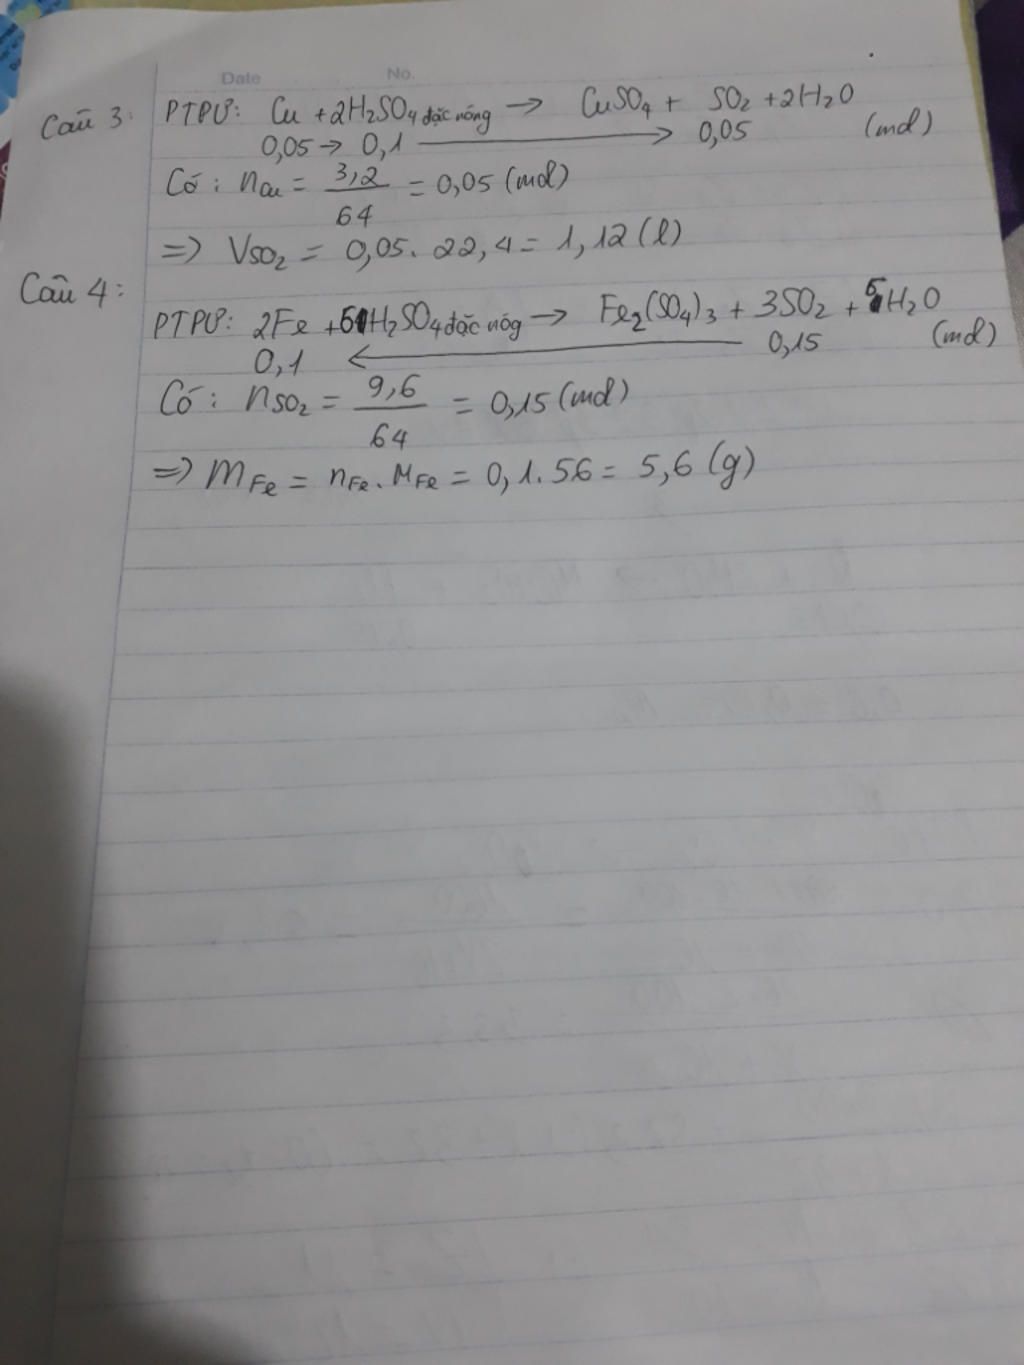 Date No.
Câu 3: PTPƯ: Cu + 2H₂SO₄ đặc nóng → CuSO₄ + SO₂ + 2H₂O
0,05 → 0,1 → 0,05 (mol)
Có: nCu = 3,2/64 = 0,05 (mol)
=> VSO₂ = 0,05. 22,4 = 1,12 (l)
Câu 4:
PTPƯ: 2Fe + 6H₂SO₄ đặc nóg → Fe₂(SO₄)₃ + 3SO₂ + 6H₂O
0,1 ← 0,15 (mol)
Có: nSO₂ = 9,6/64 = 0,15 (mol)
=> mFe = nFe. MFe = 0,1. 56 = 5,6 (g)